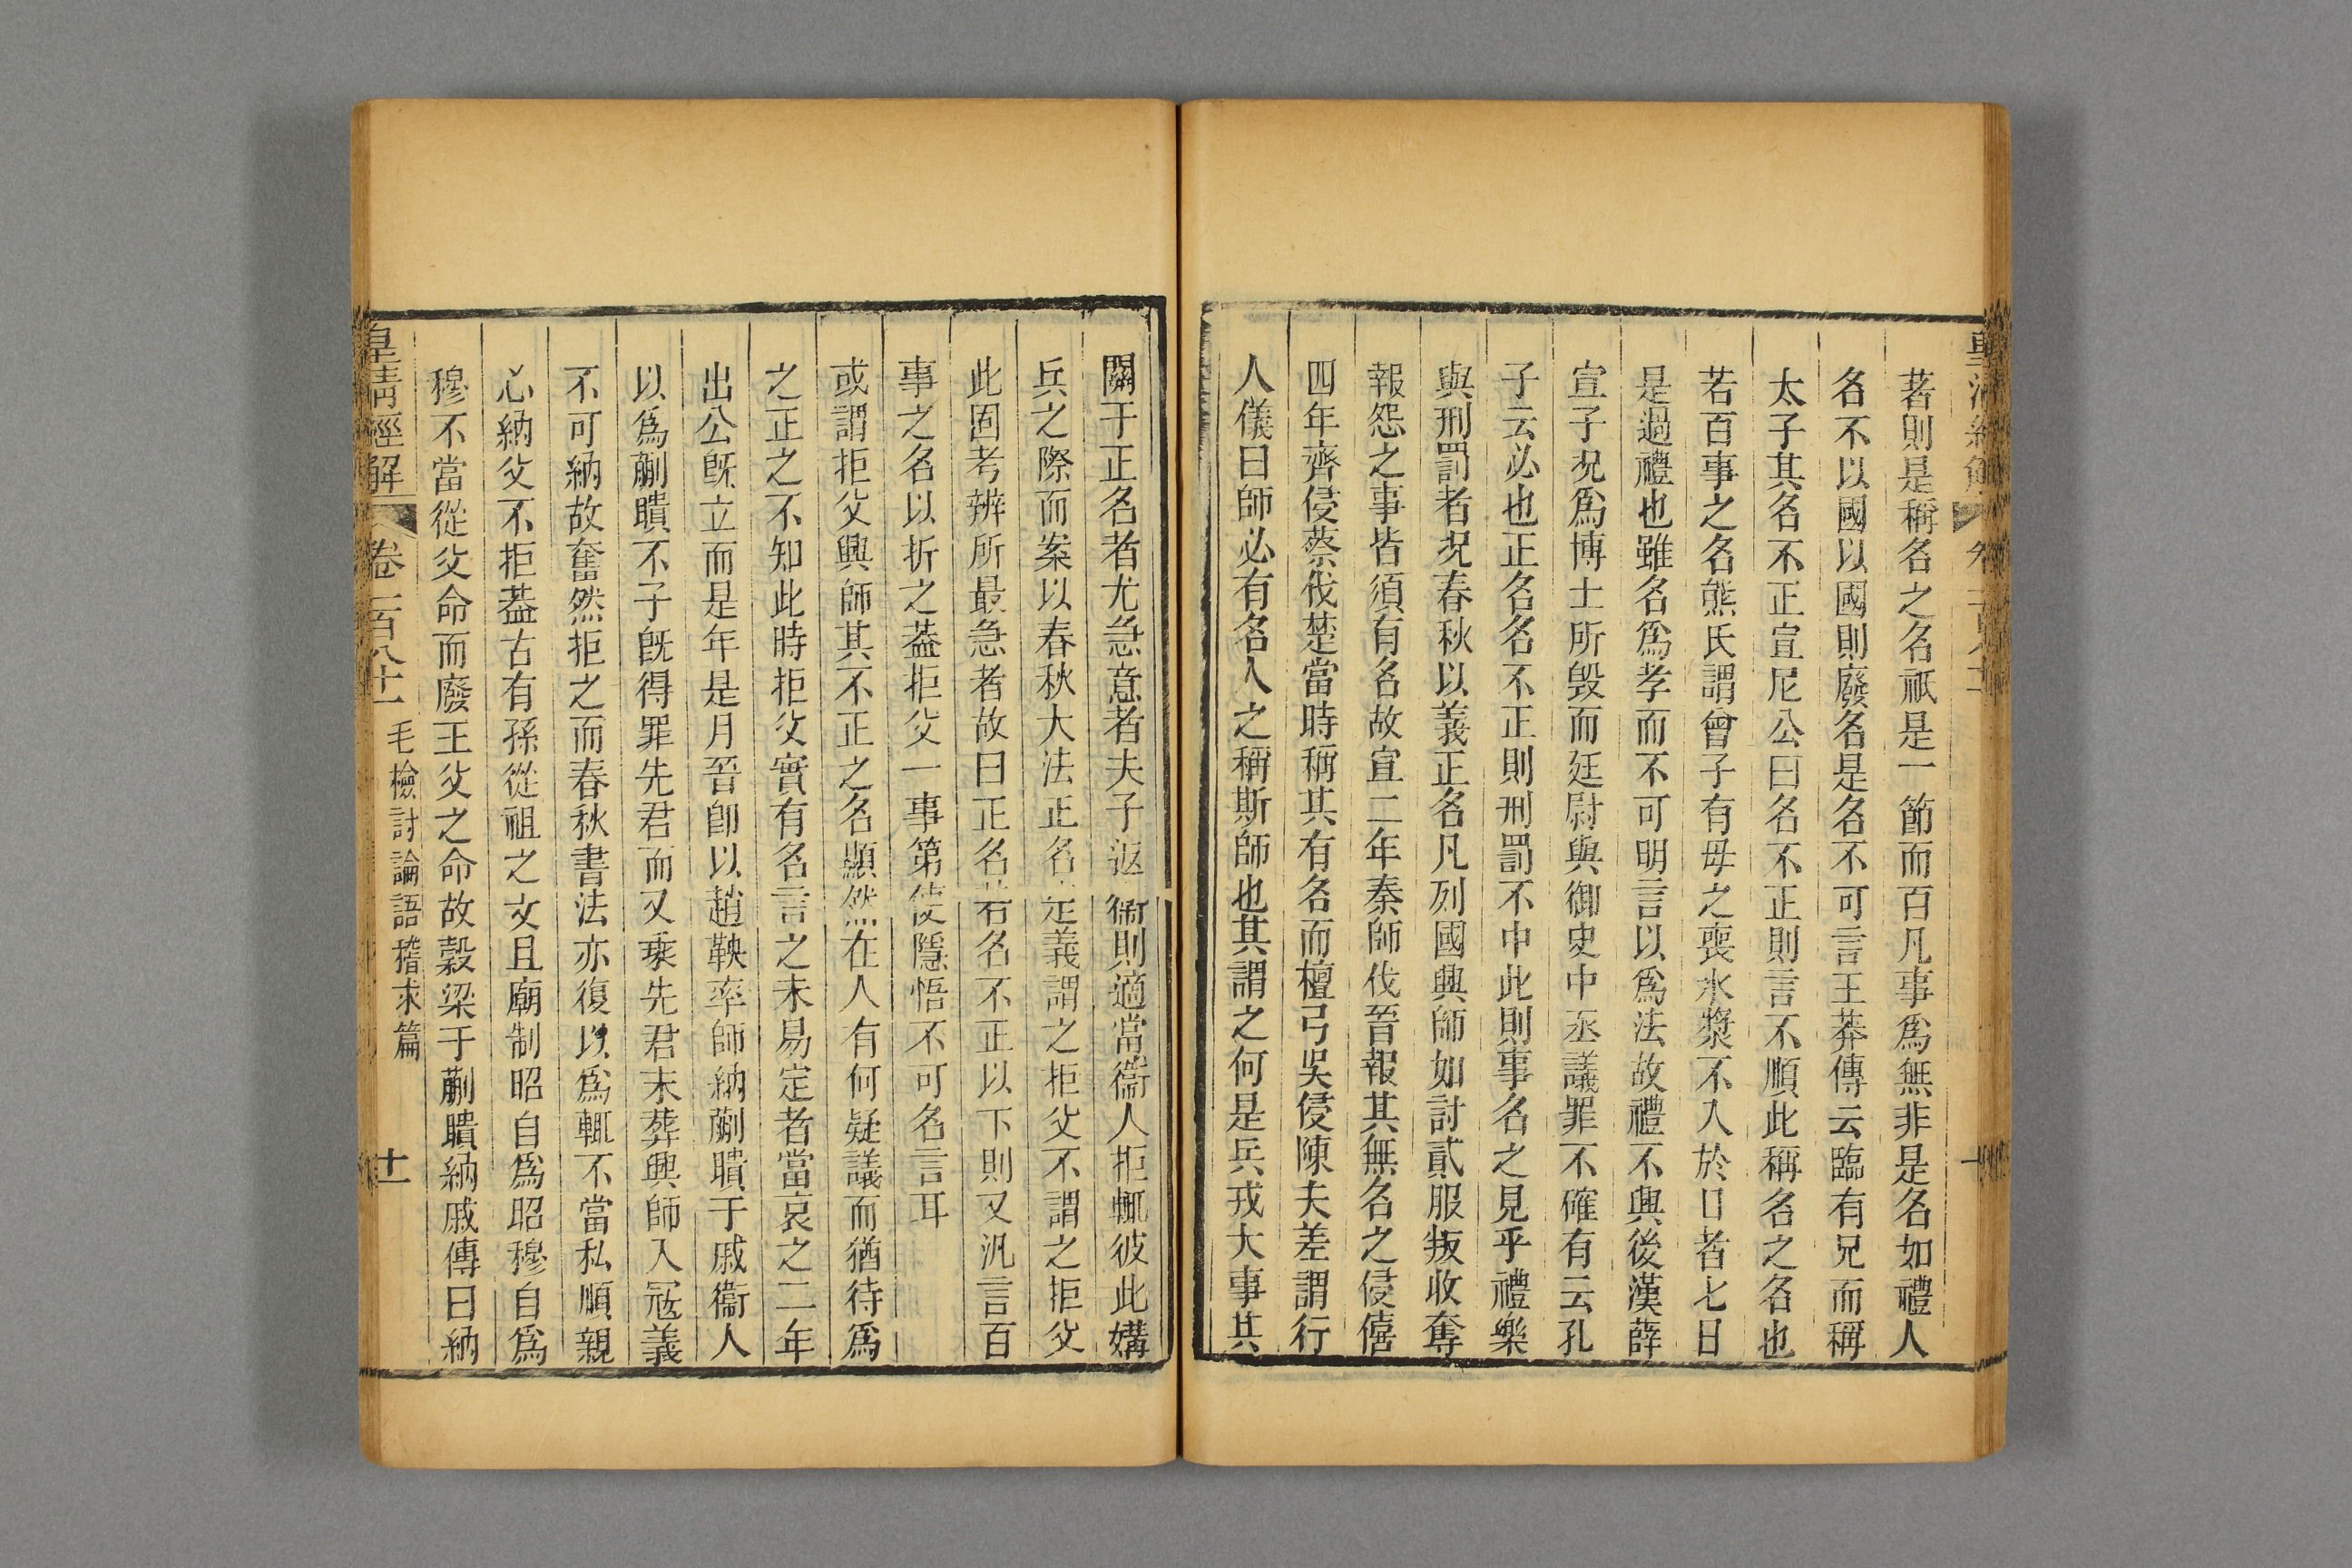 著則是稱名之名祇是一節而百凡事爲無非是名如禮人
名不以國以國則廢名是名不可言王莽傳云臨有兄而稱
太子其名不正宣尼公曰名不正則言不順此稱名之名也
若百事之名熊氏謂曾子有母之喪水漿不入於口者七日
是過禮也雖名爲孝而不可明言以爲法故禮不與後漢薛
宣子况爲博士所毁而廷尉與御史中丞議罪不確有云孔
子云必也正名名不正則刑罰不中此則事名之見乎禮樂
與刑罰者况春秋以義正名凡列國興師如討貳服叛收奪
報怨之事皆須有名故宣二年秦師伐晉報其無名之侵僖
四年齊侵蔡伐楚當時稱其有名而檀弓吳侵陳夫差謂行
人儀曰師必有名人之稱斯師也其謂之何是兵戎大事其
關于正名者尤急意者夫子返衞則適當衞人拒輒彼此媾
兵之際而案以春秋大法正名定義謂之拒父不謂之拒父
此固考辨所最急者故曰正名若名不正以下則又汎言百
事之名以折之葢拒父一事第使隱悟不可名言耳
或謂拒父興師其不正之名顯然在人有何疑議而猶待爲
之正之不知此時拒父實有名言之未易定者當哀之二年
出公旣立而是年是月晉卽以趙鞅率師納蒯聵于戚衞人
以爲蒯聵不子旣得罪先君而又乘先君未葬興師入冦義
不可納故奮然拒之而春秋書法亦復以爲輒不當私順親
心納父不拒葢古有孫從祖之文且廟制昭自爲昭穆自爲
穆不當從父命而廢王父之命故穀梁于蒯聵納戚傳曰納
皇清經解 卷一百八十一 毛檢討論語稽求篇 十一